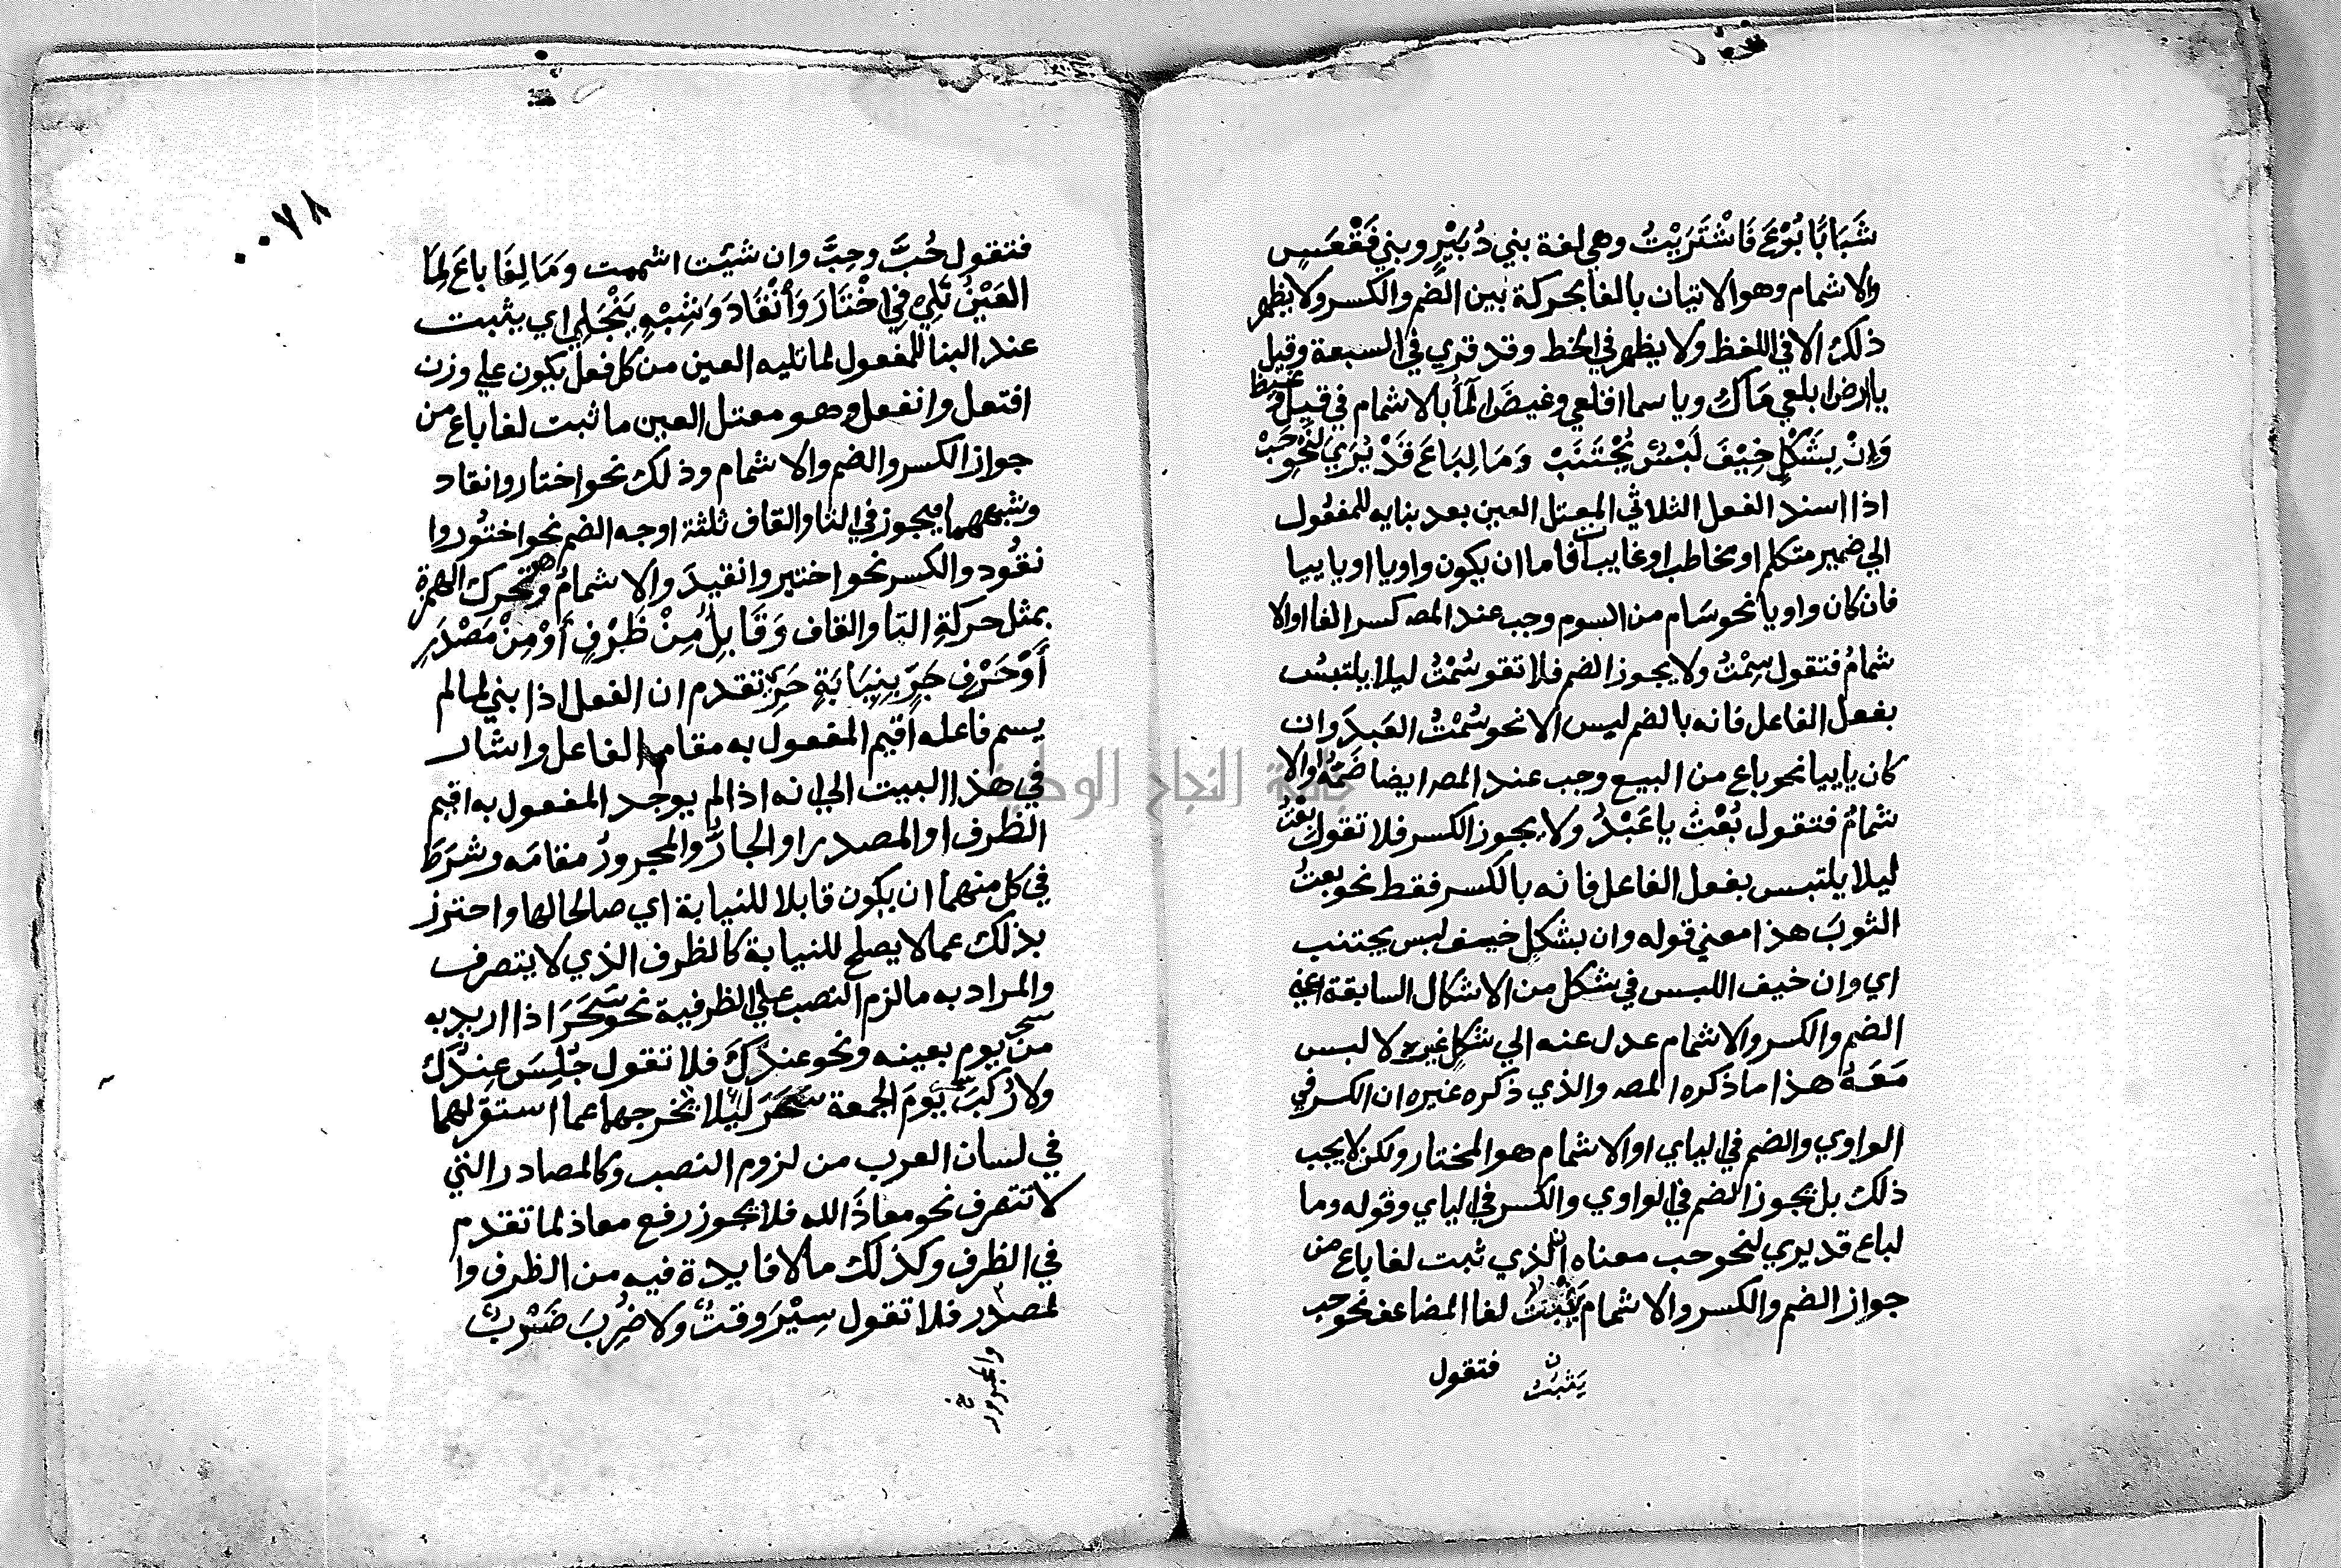 شَبَابًا بُوْعَ فَاشْتَرَيْتُ وهي لغة بني دُبَيْرٍ وبني فَقْعَسٍ
والاشمام وهو الاتيان بالفا بحركة بين الضم والكسر ولا يظهر
ذلك الا في اللفظ ولا يظهر في الخط وقد قري في السبعة وقيل
يا ارض ابلعي مَاك ويا سما اقلعي وغيضَ المَا بالاشمام في قيل وغيظ
وَاِنْ بِشَكْلٍ خِيْفَ لَبْسٌ يُجْتَنَبْ وَمَا لِبَاعَ قَدْ يُرَي لِنَحْوِ حَبْ
اذا اسند الفعل الثلاثي المعتل العين بعد بنايه للمفعول
الي ضمير متكلم او مخاطب او غايب فاما ان يكون واويا او ياييا
فان كان واويا نحو سَام من السوم وجب عند المصـ كسر الفا او الا
شمامُ فتقول سِمْتُ ولا يجوز الضم فلا تقو سُمْتُ ليلا يلتبسُ
بفعل الفاعل فانه بالضم ليس الا نحو سُمْتُ العَبدَ وان
كان ياييا نحو باع من البيع وجب عند المصـ ايضا ضَمُّهُ او الا
شمامُ فتقول بُعْتُ يا عَبْدُ ولا يجوز الكسر فلا تقول بِعْتُ
ليلا يلتبس بفعل الفاعل فانه بالكسر فقط نحو بعتُ
الثوبَ هذا معني قوله وان بشكلٍ خيف لبس يجتنب
اي وان خيف اللبس في شكل من الاشكال السابقة اعني
الضم والكسر والاشمام عدل عنه الي شكلٍ غيره لا لبس
مَعَهُ هذا ما ذكره المصـ والذي ذكره غيره ان الكسر في
الواوي والضم في الياي او الاشمام هو المختار ولكن لا يجب
ذلك بل يجوز الضم في الواوي والكسر في الياي وقوله وما
لباع قد يري لنحو حب معناه ان الذي ثبت لفا باع من
جواز الضم والكسر والاشمام يَثْبُتُ لفا المضاعف نحو حب
ن يَثبتُ
فتقول
٠٠٧٨
فتقول حُبَّ وحِبَّ وان شئت اشممت وَمَا لِفَا باعَ لِمَا
العَيْنُ تَلِي في اخْتَارَ وَانْقَادَ وَشِبْهٍ يَنْجَلِي اي يثبت
عند البنا للمفعول لما تليه العين من كل فعل يكون علي وزن
افتعل وانفعل وهو معتل العين ما ثبت لفا باع من
جواز الكسر والضم والاشمام وذلك نحو اختار وانقاد
وشبههما فيجوز في التا والقاف ثلثة اوجه الضم نحو اختُوروا
نقُود والكسر نحو اختير وانقيدَ والاشمامُ وتحرك الهمزة
بمثل حركةِ التا والقاف وَقَابِلٌ مِنْ ظَرْفٍ أوْ مِنْ مَصْدَرِ
أَوْ حَرْفِ جَرٍّ بِنِيَابَةٍ حَرِي تقدم ان الفعل اذا بني لما لم
يسم فاعله اقيم المفعول به مقام الفاعل واشار
في هذا البيت الي انه اذا لم يوجد المفعول به اقيم
الظرف او المصدر او الجارُّ والمجرورُ مقامَه وشرَطَ
في كل منهما ان يكون قابلا للنيابة اي صالحا لها واحترز
بذلك عما لا يصلح للنيابة كالظرف الذي لا يتصرف
والمراد به ما لزم النصب علي الظرفية نحو سَحَرَ اذا اريد به
سحر
من يوم بعينه ونحو عندَكَ فلا تقول جُلِسَ عِندُكَ
ولا رُكبَ يَومَ الجمعة سحَرُ ليلا تخرجها عما استقر لهما
في لسان العرب من لزوم النصب وكالمصادر التي
لا تتصرف نحو معاذَ الله فلا يجوز رفع معاذ لما تقدم
في الظرف وكذلك ما لا فايدة فيه من الظرف وا
لمصدر فلا تقول سِيْرَ وقتٌ ولا ضُرِبَ ضَرْبٌ